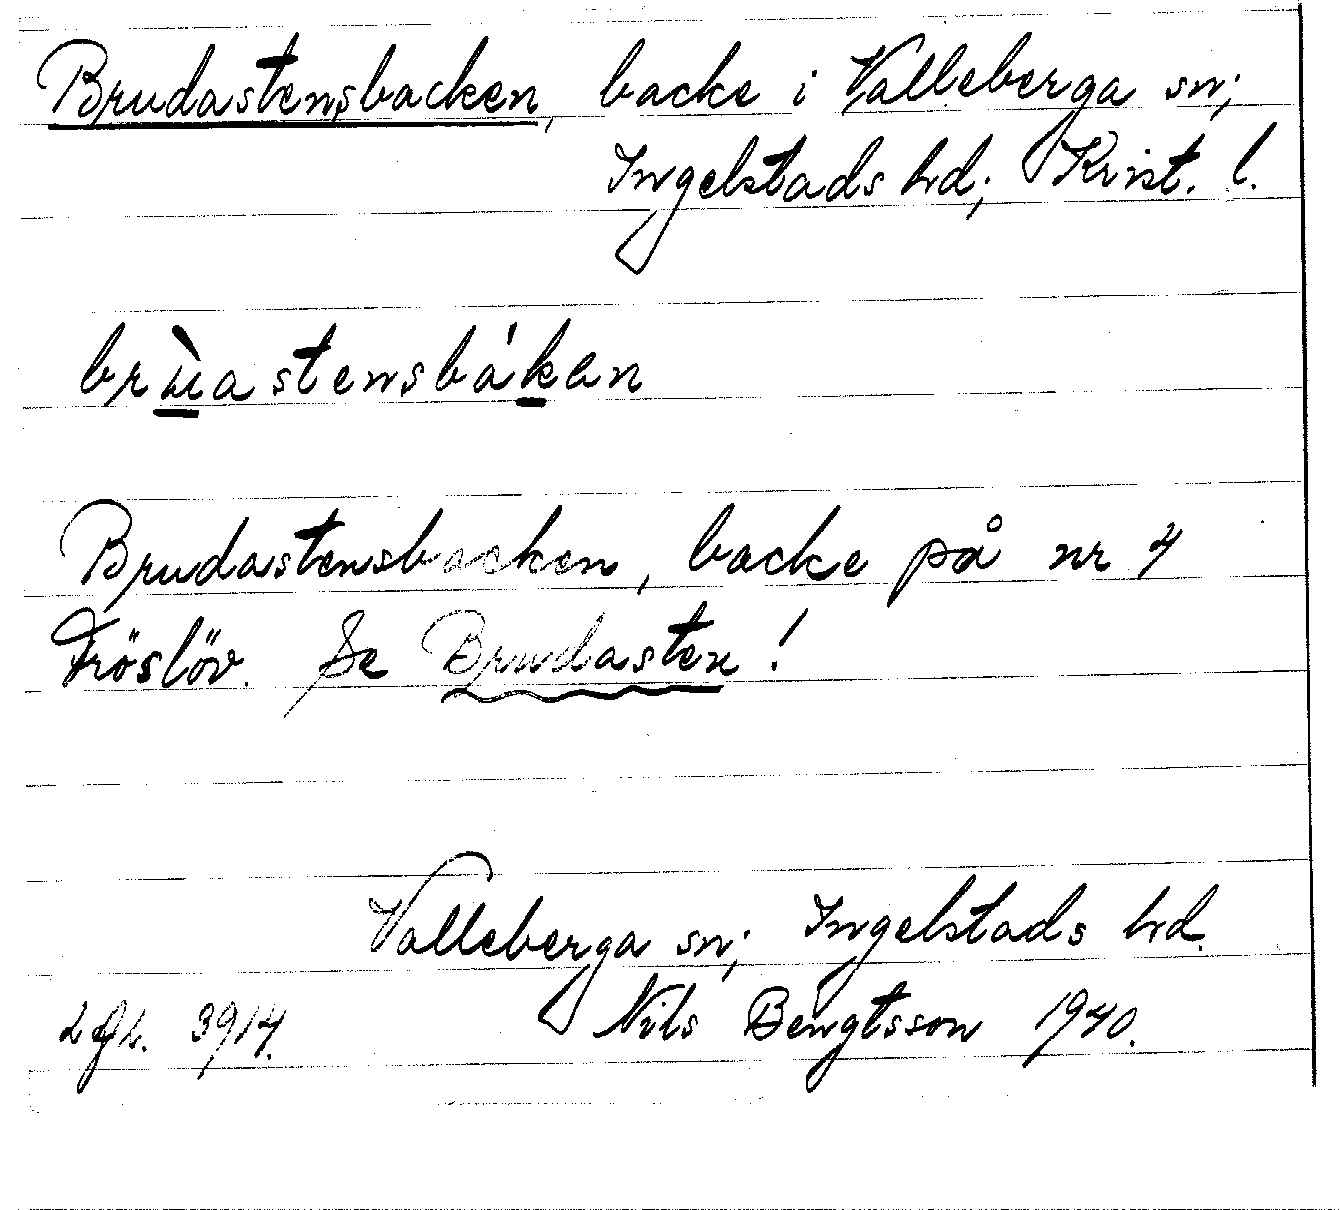 Brudastensbacken, backe i Valleberga sn;
Ingelstads hd; Krist. l.
brùastensbákan
Brudastensbacken, backe på nr 4
Fröslöv. Se Brudasten!
Valleberga sn; Ingelstads hd.
3914. Nils Bengtsson 1940.